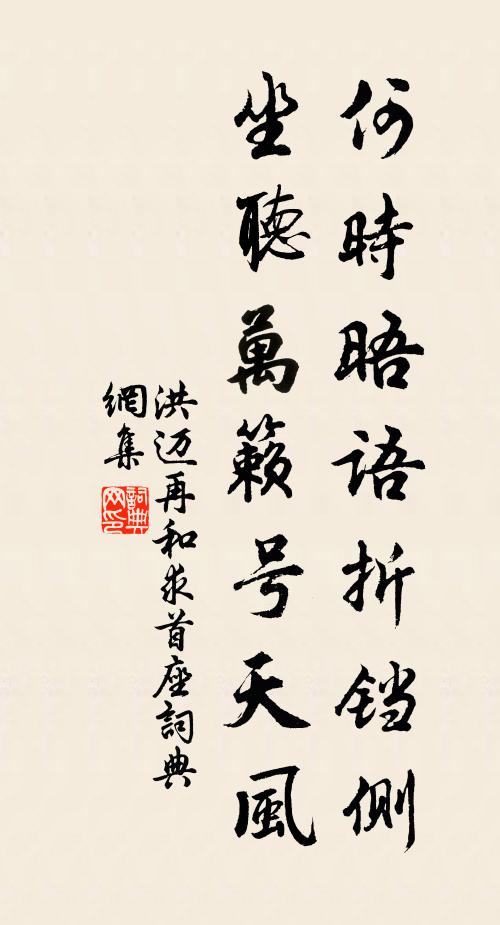 何時晤语折铛側
坐聽萬籟号天風
洪迈再和求首座詞典
網集
詞典
网印